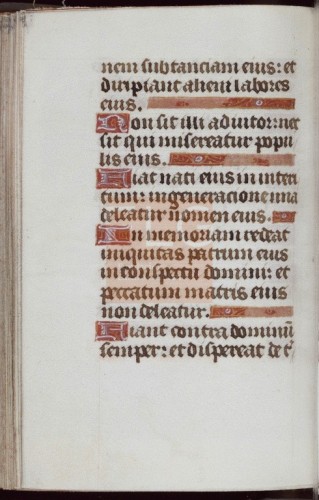 nem substanciam eius: et
diripiant alieni labores
eius.
Non sit illi adiutor: nec
sit qui misereatur popu
lis eius.
Fiat nati eius in interi
tum: in generacione una
deleatur nomen eius.
In memoriam redeat
iniquitas patrum eius
in conspectu domini: et
peccatum matris eius
non deleatur.
Fiant contra dominū
semper: et dispereat de t̄